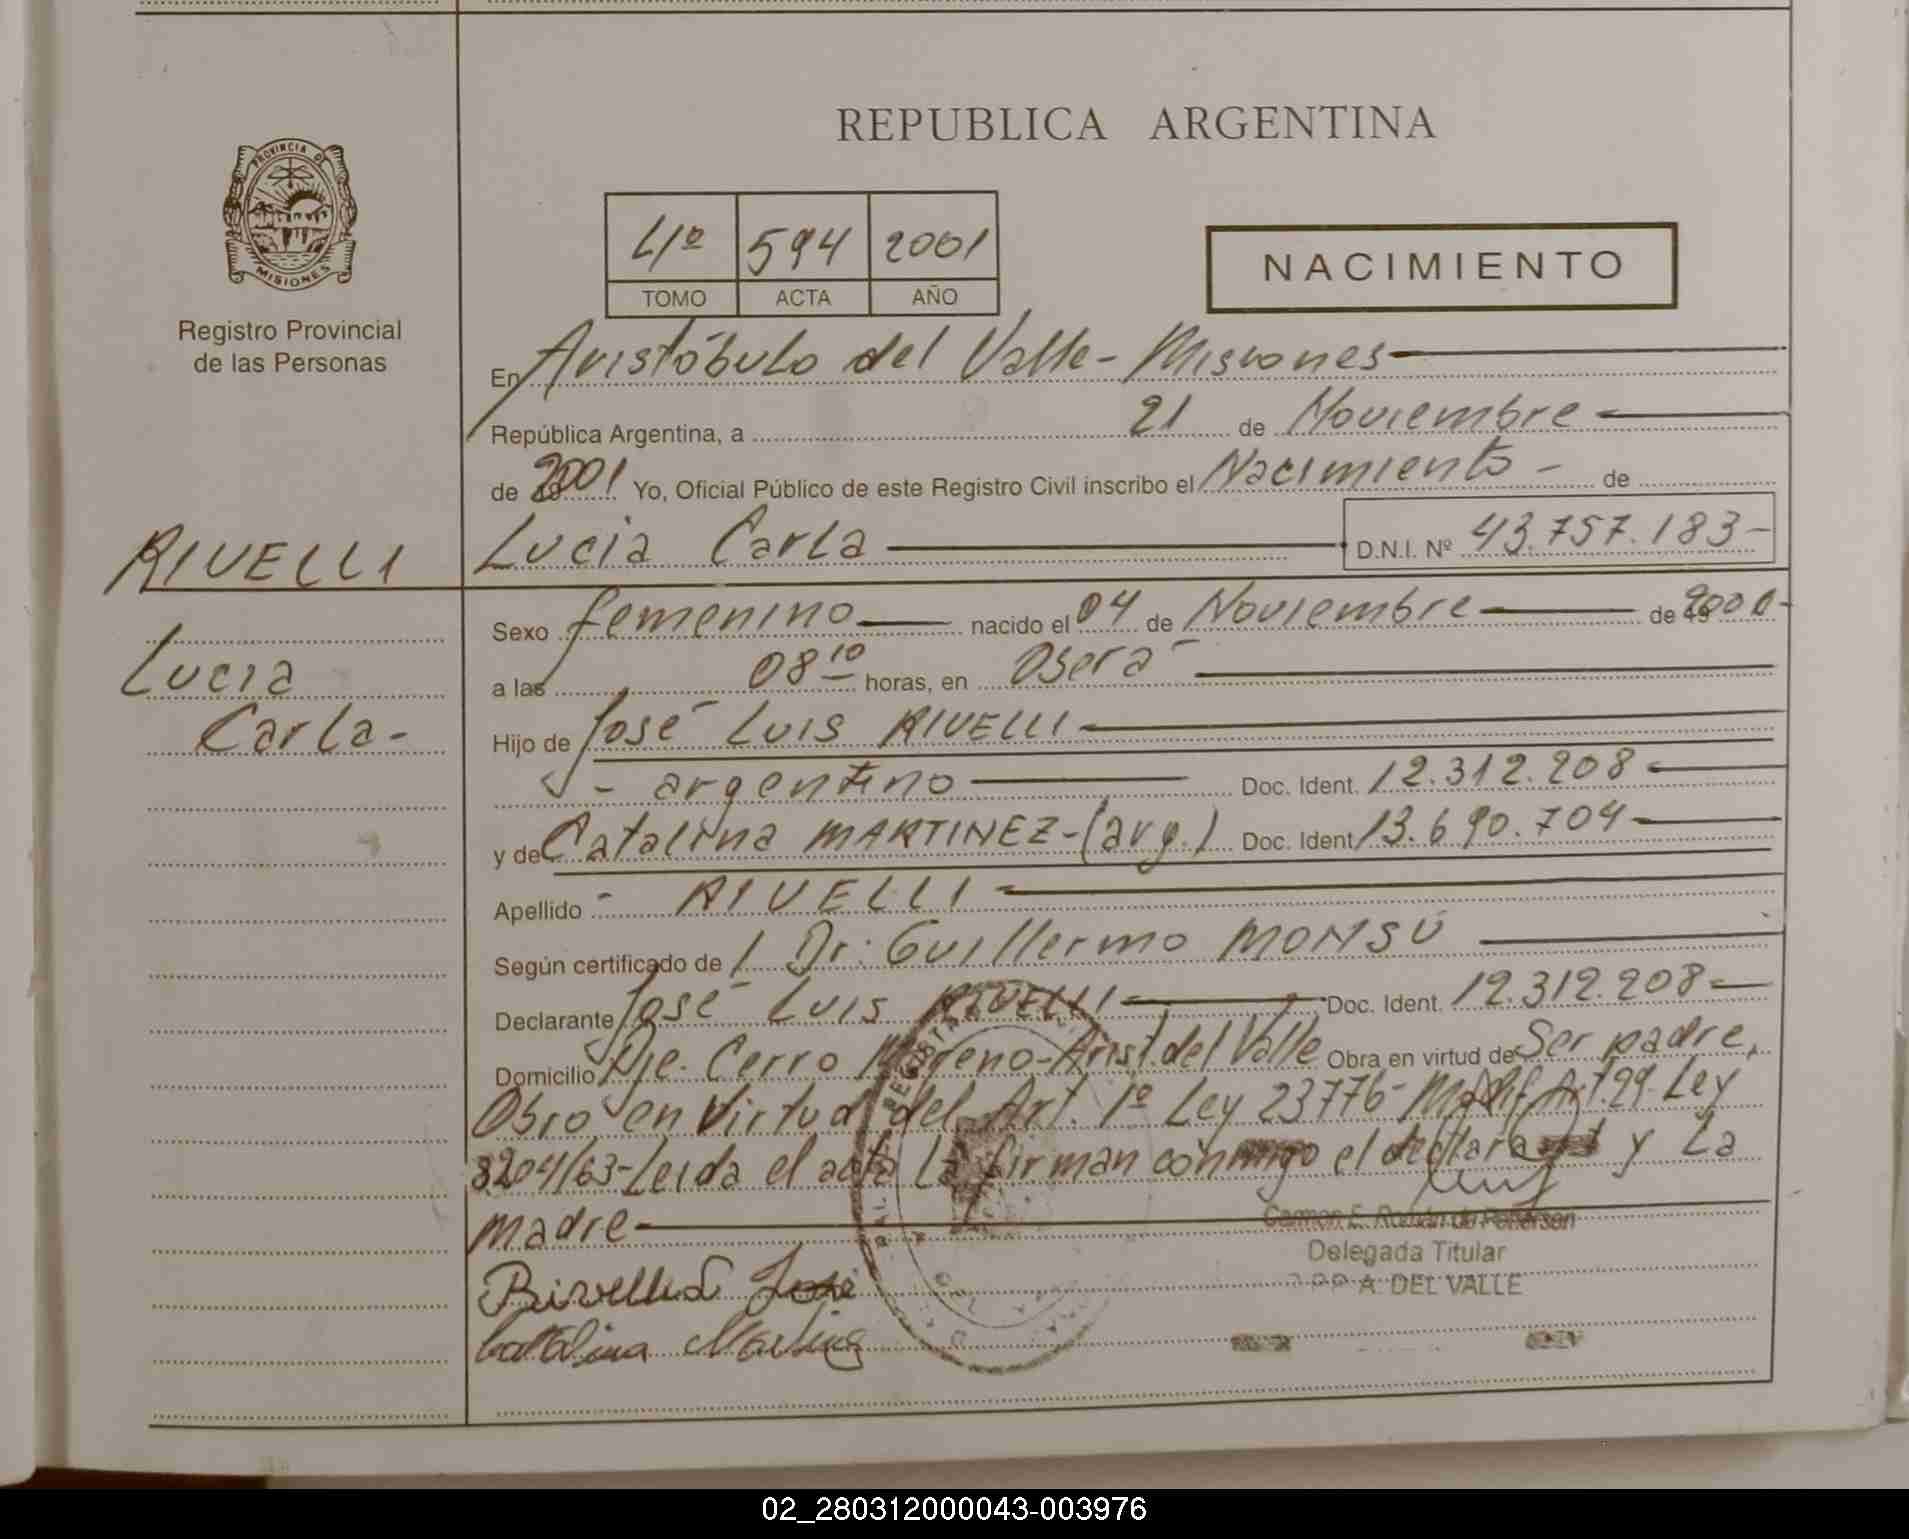 PROVINCIA DE
MISIONES
Registro Provincial
de las Personas
REPUBLICA ARGENTINA
4º 594 2001
TOMO ACTA AÑO
NACIMIENTO
En Aristóbulo del Valle - Misiones
República Argentina, a 21 de Noviembre
de 2001 Yo, Oficial Público de este Registro Civil inscribo el Nacimiento - de
RIVELLI Lucia Carla D.N.I. Nº 43.757.183-
Sexo femenino nacido el 04 de Noviembre de 2000-
Lucia
a las 08 10 horas, en Oberá
Carla-
Hijo de José Luis RIVELLI
- argentino Doc. Ident. 12.312.208
y de Catalina MARTINEZ-(arg.) Doc. Ident. 13.690.704
Apellido - RIVELLI
Según certificado de Dr: Guillermo MONSÚ
Declarante José Luis RIVELLI Doc. Ident. 12.312.208
Domicilio Pje. Cerro Moreno-Arist. del Valle Obra en virtud de Ser padre,
Obro en virtud del Art. 1º Ley 23776- Modif Art. 29- Ley
8204/63-Leida el acta La firman conmigo el declarant y La
madre
Carmen E. Román de Peterson
Delegada Titular
A. DEL VALLE
José
Catalina Martinez
02_280312000043-003976